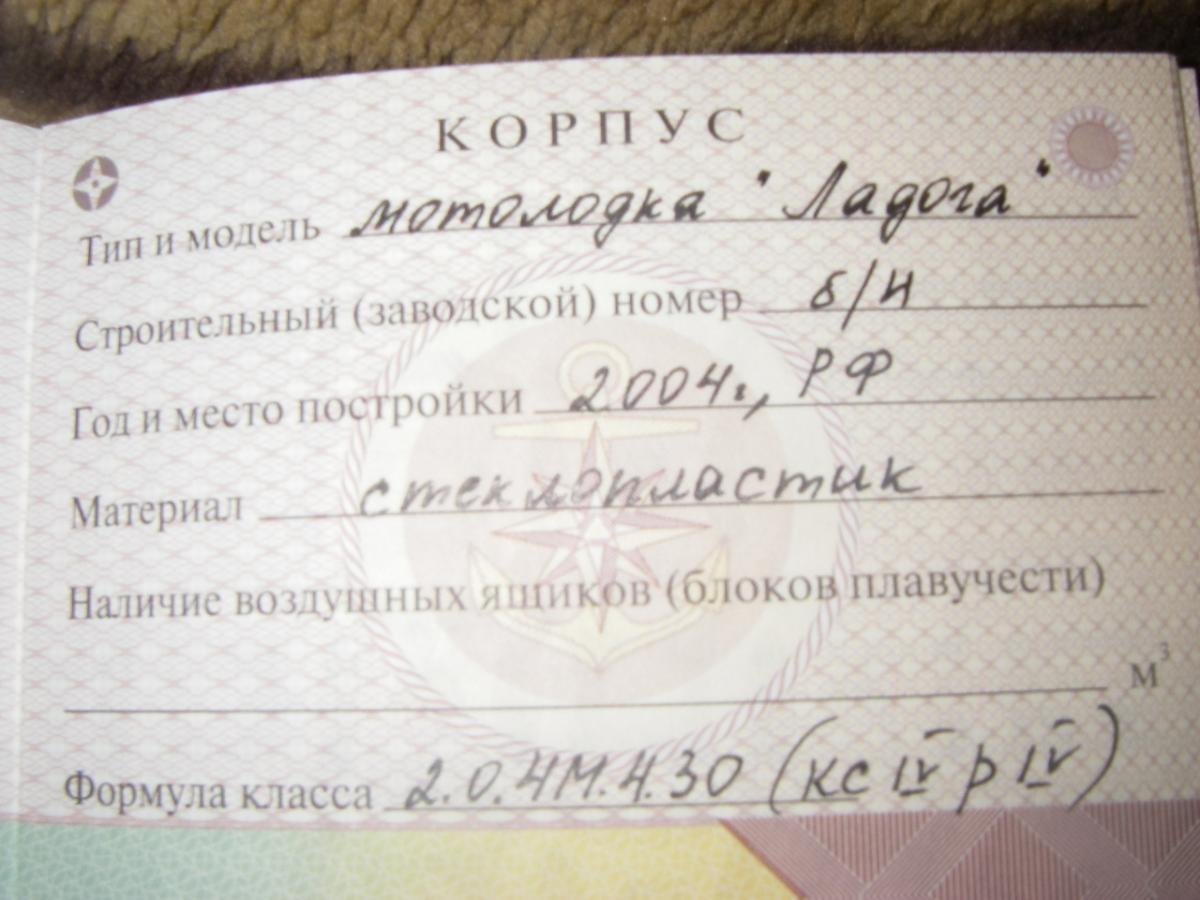 КОРПУС
Тип и модель мотолодка "Ладога"
Строительный (заводской) номер б/н
Год и место постройки 2004г., РФ
Материал стеклопластик
Наличие воздушных ящиков (блоков плавучести)
м³
Формула класса 2.0.4М.4.30 (кс IV р IV)